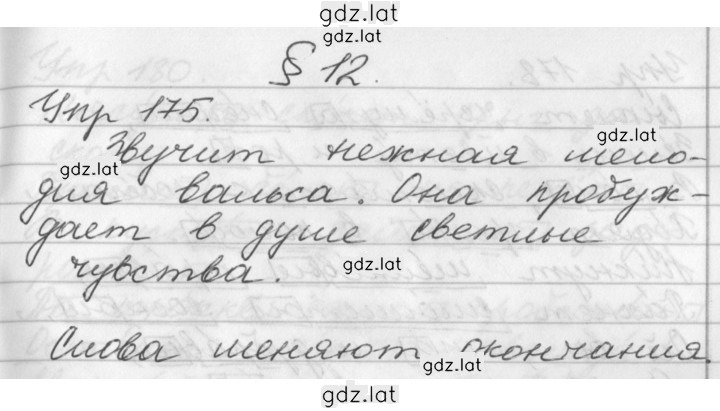 gdz.lat
gdz.lat
§ 12.
Упр 175.
Звучит нежная мело-
gdz.lat
gdz.lat
дия вальса. Она пробуж-
дает в душе светлые
чувства.
gdz.lat
Слова меняют окончания.
gdz.lat
gdz.lat